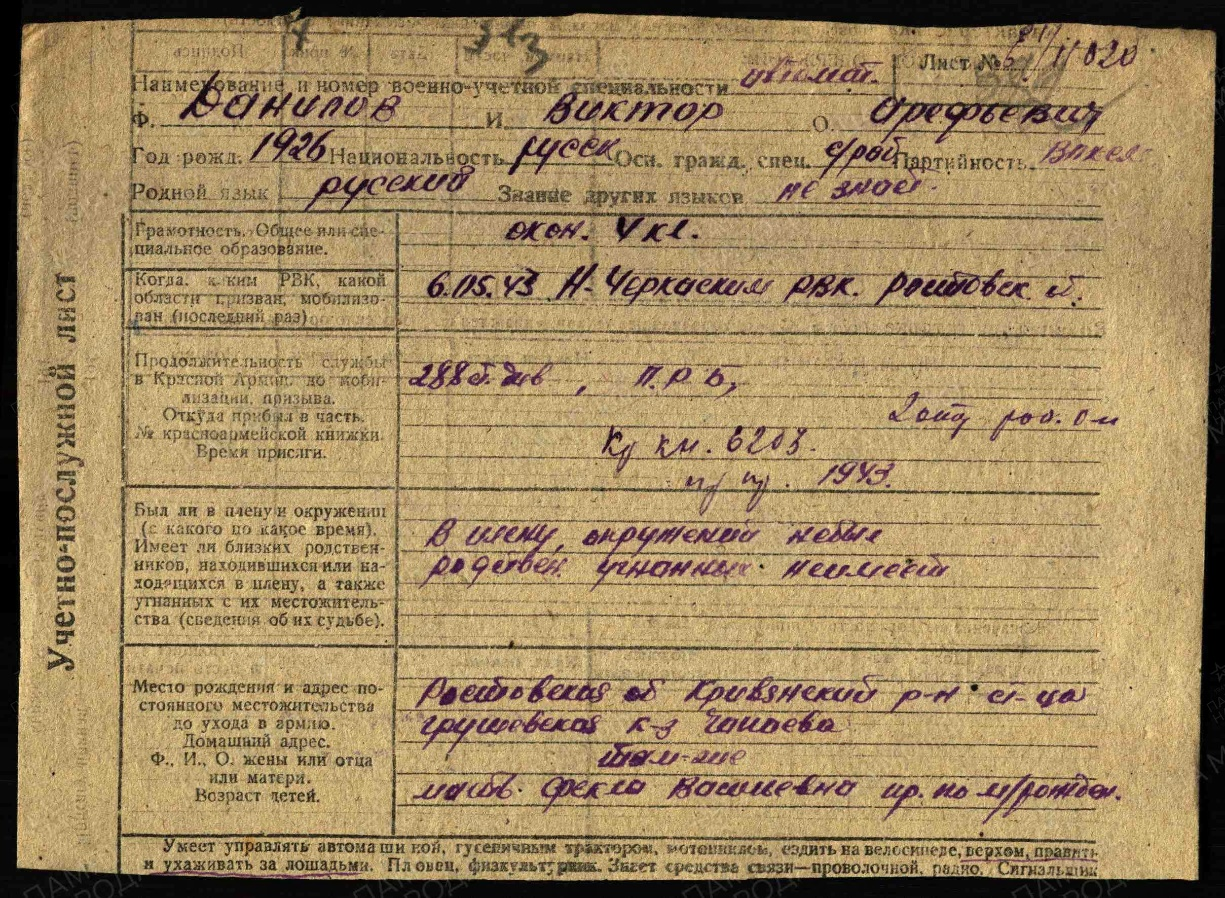 313
Лист № 11020
Наименование и номер военно-учетной специальности автомат.
Ф. Данилов И. Виктор О. Арефьевич
Год рожд. 1926 Национальность русск Осн. гражд. спец. с/раб Партийность
Родной язык русский Знание других языков не знает
Грамотность. Общее или спе-
циальное образование.
окон. 4 кл.
Когда, каким РВК, какой
области призван, мобилизо-
ван (последний раз)
6.05.43 Н-Черкаским РВК. Ростовск. об.
Продолжительность службы
в Красной Армии до моби-
лизации, призыва.
Откуда прибыл в часть.
№ красноармейской книжки.
Время присяги.
288
Кр кн. 6203.
1943.
Был ли в плену и окружении
(с какого по какое время).
Имеет ли близких родствен-
ников, находившихся или на-
ходящихся в плену, а также
угнанных с их местожитель-
ства (сведения об их судьбе).
В плену, окружении небыл
родствен. угнанных неимеет
Место рождения и адрес по-
стоянного местожительства
до ухода в армию.
Домашний адрес.
Ф., И., О. жены или отца
или матери.
Возраст детей.
Ростовская об Кривянский р-н ст-ца
грушевская к-з Чапаева
там-же
Фекла Васильевна пр. по м/рожден.
Учетно-послужной лист
Умеет управлять автомашиной, гусеничным трактором, мотоциклом, ездить на велосипеде, верхом, править
и ухаживать за лошадьми. Пловец, физкультурник. Знает средства связи—проволочной, радио. Сигнальщик